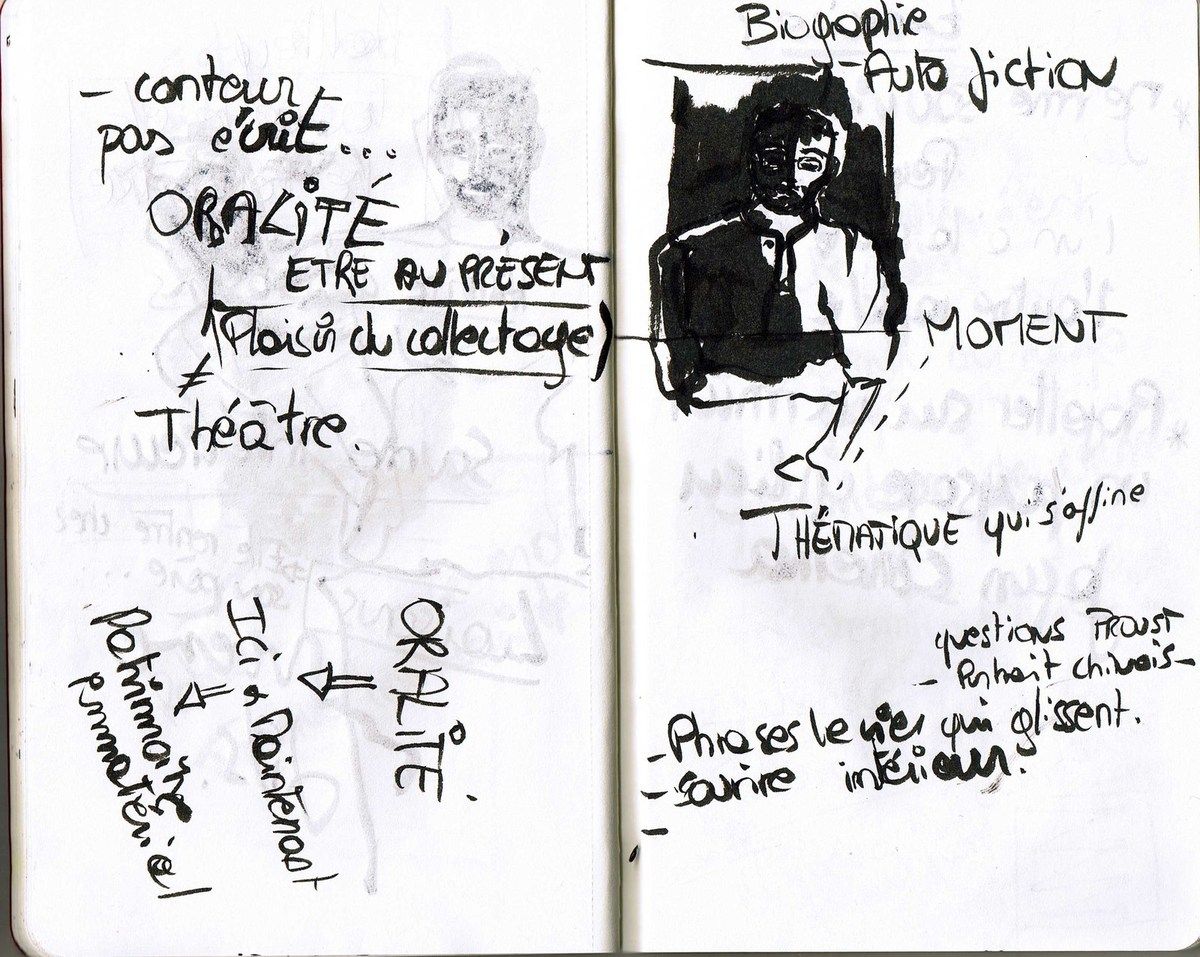 - conteur
pas écrit...
ORALITÉ
ETRE AU PRÉSENT
(Plaisir du collectage)
≠
Théâtre.
ORALITÉ.
Ici & Maintenant
Patrimoine
immatériel
Biographie
- Auto fiction
MOMENT
THÉMATIQUE qui s'affine
questions PROUST
- Portrait chinois -
- Phrases levier qui glissent.
- sourire intérieur.
-